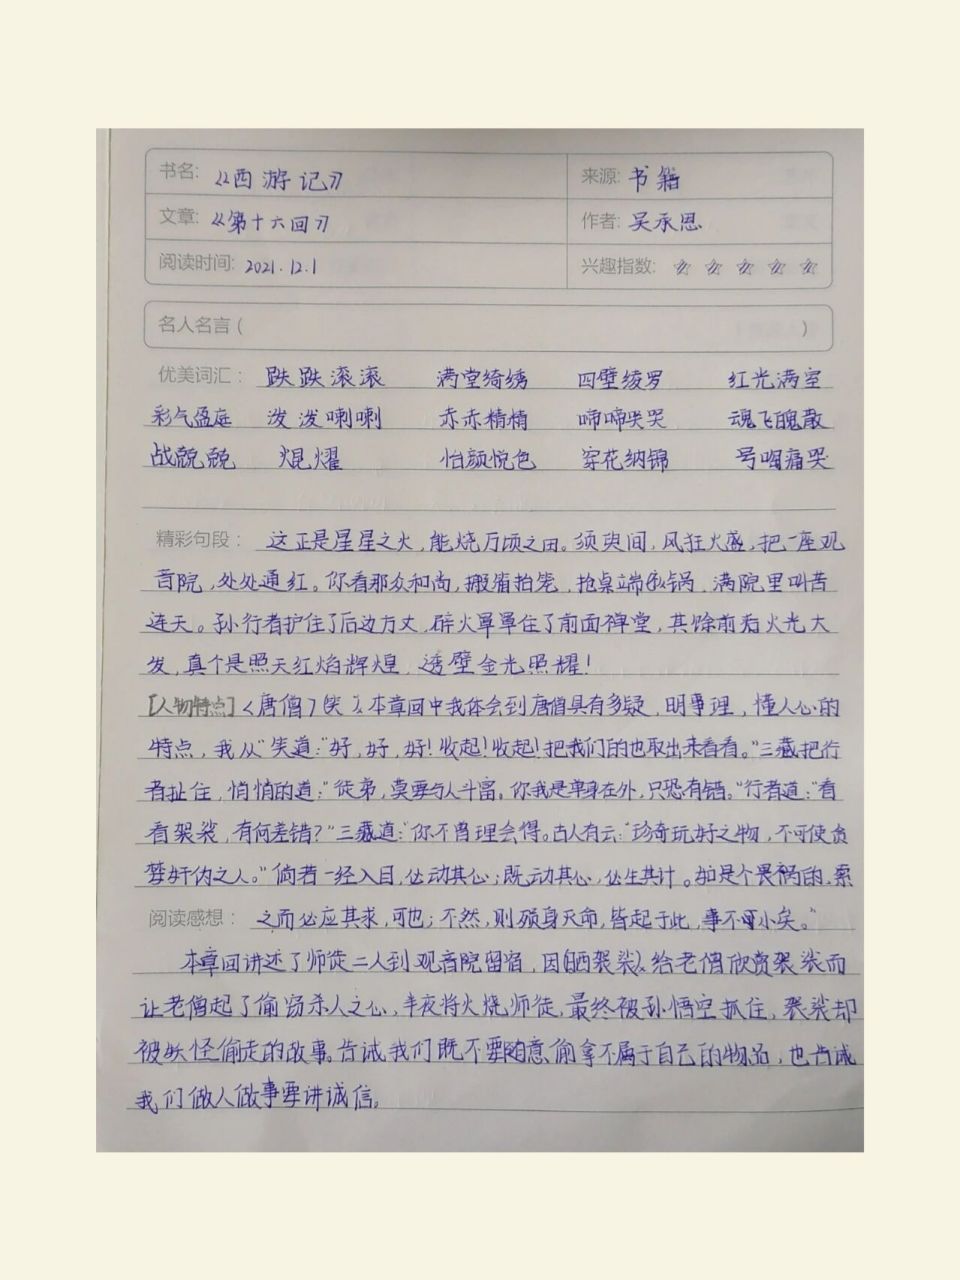 书名: 《西游记》 来源: 书籍
文章: 《第十六回》 作者: 吴承恩
阅读时间: 2021.12.1 兴趣指数: ☆ ☆ ☆ ☆ ☆
名人名言 ( )
优美词汇: 跌跌滚滚 满堂绮绣 四壁绫罗 红光满室
彩气盈庭 泼泼喇喇 赤赤精精 啼啼哭哭 魂飞魄散
战兢兢 焜耀 怡颜悦色 穿花纳锦 号咽痛哭
精彩句段: 这正是星星之火,能烧万顷之田。须臾间,风狂火盛,把一座观
音院,处处通红。你看那众和尚,搬箱抬笼,抢桌端锅,满院里叫苦
连天。孙行者护住了后边方丈,辟火罩罩住了前面禅堂,其馀前后火光大
发,真个是照天红焰辉煌,透壁金光照耀!
[人物特点]《唐僧》 本章回中我体会到唐僧具有多疑,明事理,懂人心的
特点,我从“笑道:“好,好,好!收起!收起!把我们的也取出来看看。”三藏把行
者扯住,悄悄的道:“徒弟,莫要与人斗富。你我是单身在外,只恐有错。”行者道:“看
看袈裟,有何差错?”三藏道:“你不曾理会得。古人有云:“珍奇玩好之物,不可使贪
婪奸伪之人。”倘若一经入目,必动其心;既动其心,必生其计。如是个畏祸的,索
阅读感想: 之而必应其求,可也;不然,则殒身灭命,皆起于此,事不可小矣。”
本章回讲述了师徒二人到观音院留宿,因晒袈裟给老僧欣赏袈裟而
让老僧起了偷窃杀人之心,半夜将火烧师徒,最终被孙悟空抓住,袈裟却
被妖怪偷走的故事。告诫我们既不要随意偷拿不属于自己的物品,也告诫
我们做人做事要讲诚信。